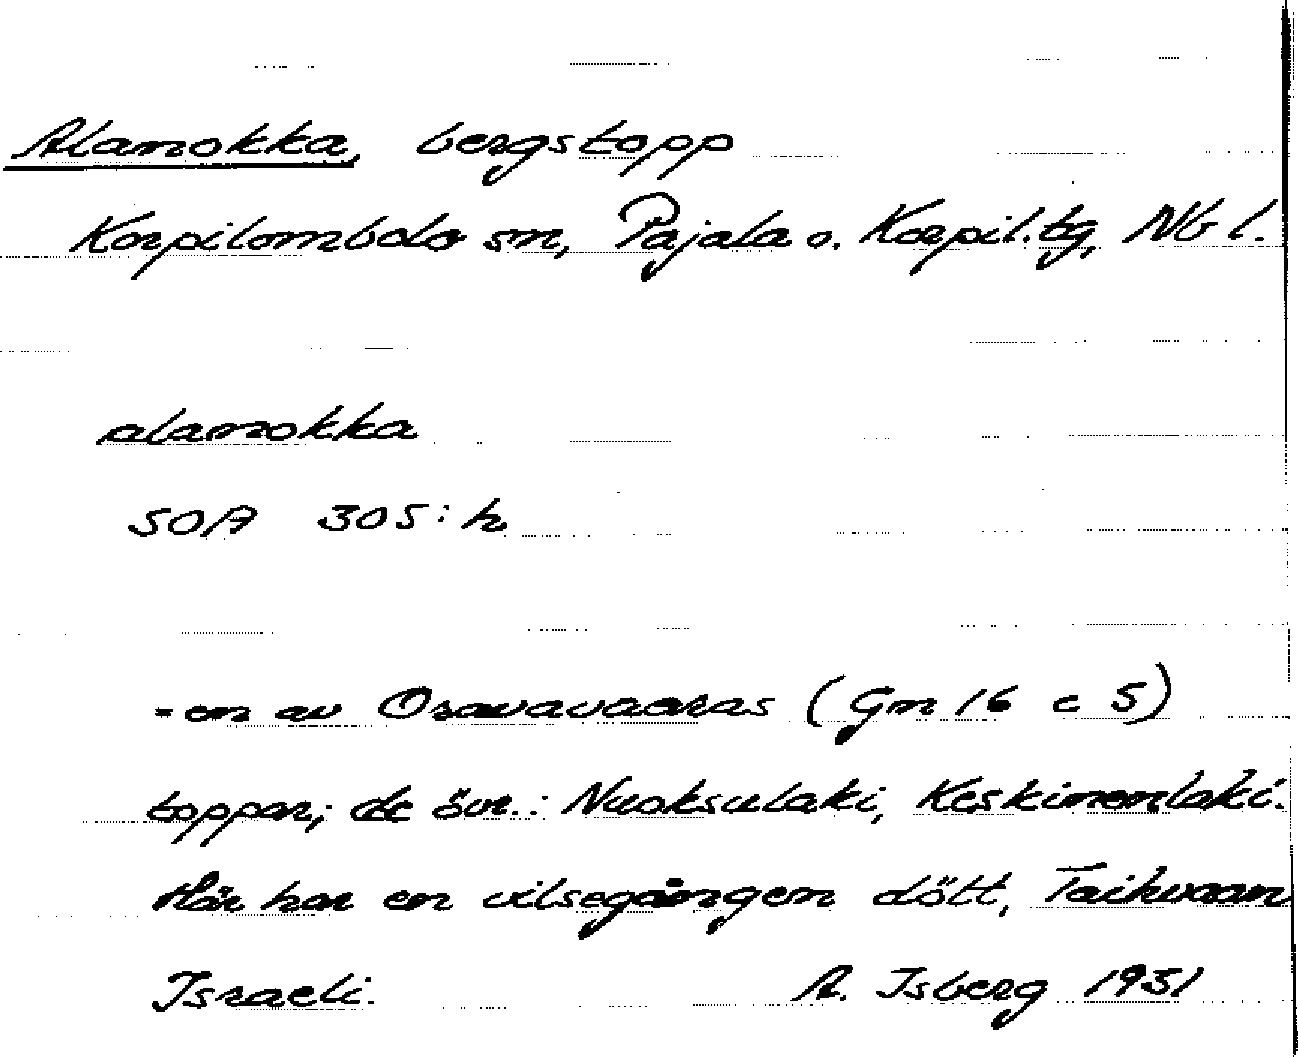 Alanokka, bergstopp
Korpilombolo sn, Pajala o. Korpil. tg, Nb l.
alanokka
SOA 305: h
- en av Oravavaaras (Gn 16 c 5)
toppar; de övr.: Nuoksulaki, Keskinenlaki.
Här har en vilsegången dött, Taihvaan
Israeli. A. Isberg 1931